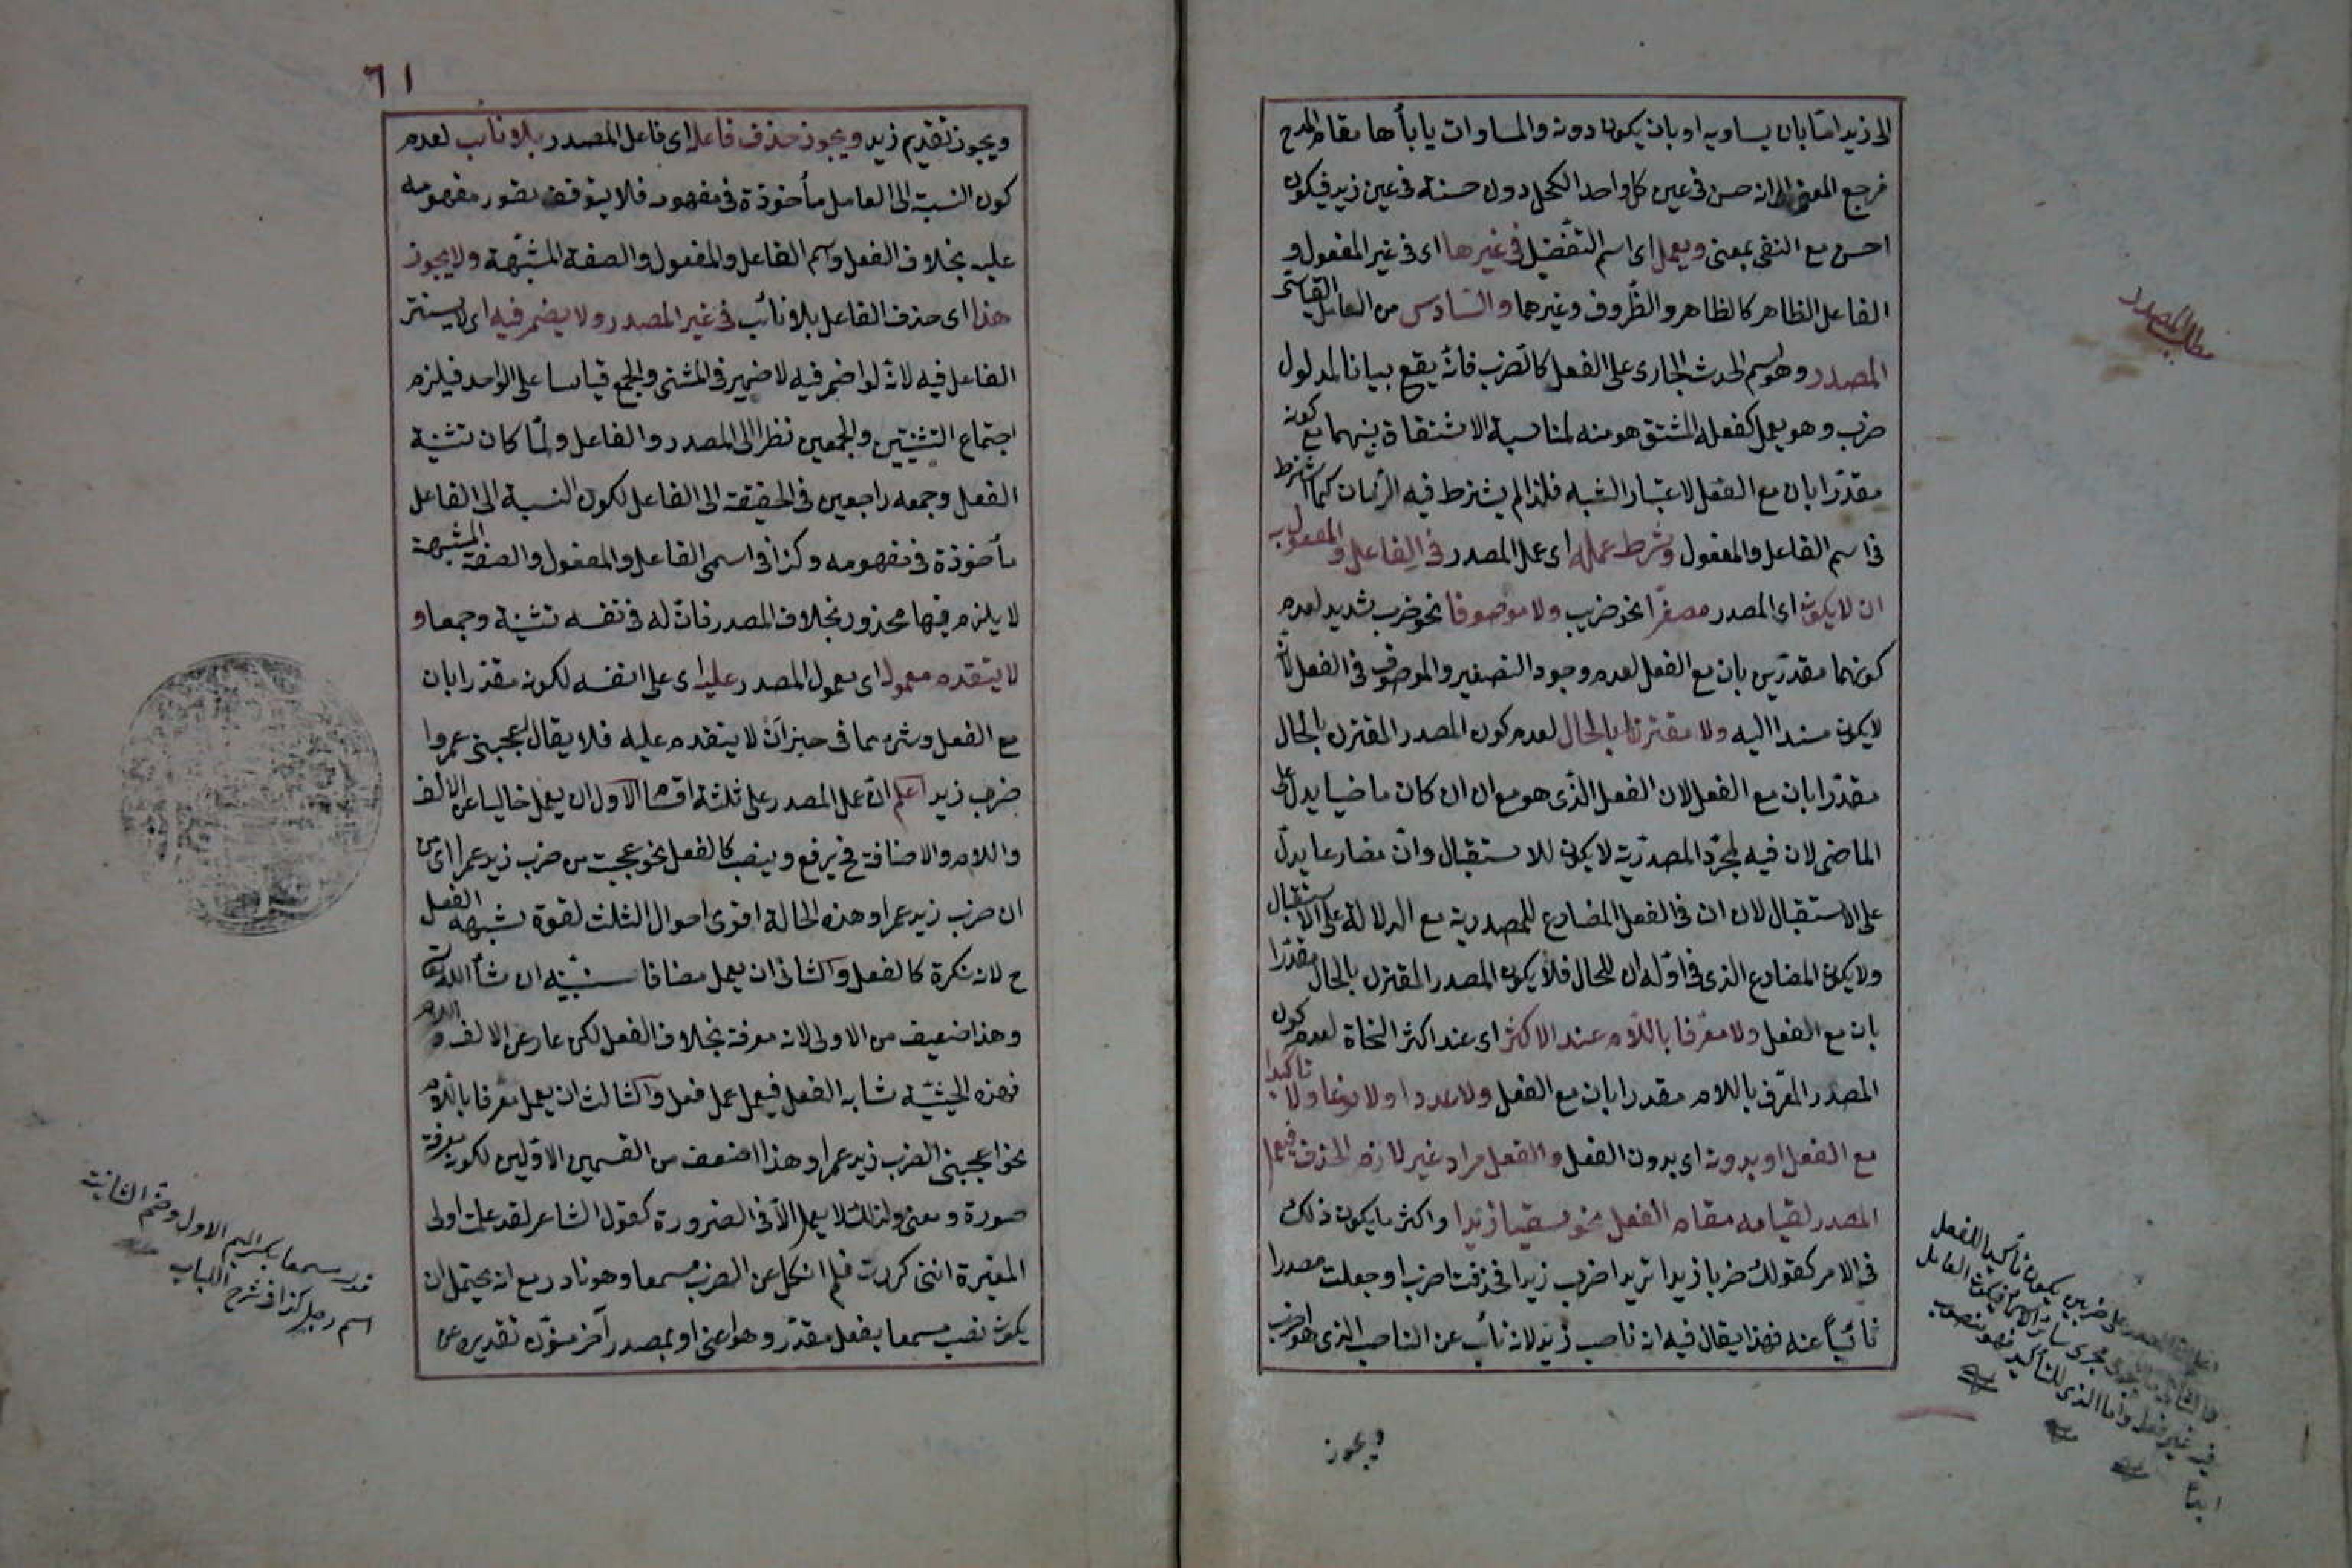 الى زيد امّا بان يساويه او بان يكون دونه والمساوات ياباها مقام المدح
فرجع المعنى الى انه حسن فى عين كل واحد الكحل دون حسنه فى عين زيد فيكون
احسن مع النفى بمعنى ويعمل اى اسم التفضيل فى غيرها اى فى غير المفعول و
الفاعل الظاهر كالظاهر والظروف وغيرهما والسّادس من العامل القياسى
المصدر وهو اسم الحدث الجارى على الفعل كالضرب فانّه يقع بيانا لمدلول
ضرب وهو يعمل كفعله المشتق هو منه لمناسبة الاشتقاق بينهما مع كونه
مقدّرا بان مع الفعل لاعتبار الشبه فلذا لم يشترط فيه الزمان كما اشترط
فى اسم الفاعل والمفعول وشرط عمله اى عمل المصدر فى الفاعل والمفعول به
ان لا يكون اى المصدر مصغّرا نحو ضريب ولا موصوفا نحو ضرب شديد لعدم
كونهما مقدّرين بان مع الفعل لعدم وجود التصغير والموصوف فى الفعل لانه
لا يكون مسندا اليه ولا مقترنا بالحال لعدم كون المصدر المقترن بالحال
مقدّرا بان مع الفعل لان الفعل الذى هو مع ان ان كان ماضيا يدل على
الماضى لان فيه لمجرّد المصدريّة لا يكون للاستقبال وان مضارعا يدلّ
على الاستقبال لان ان فى الفعل المضارع للمصدرية مع الدلالة على الاستقبال
ولا يكون المضارع الذى فى اوّله ان للحال فلا يكون المصدر المقترن بالحال مقدّرا
بان مع الفعل ولا معرّفا باللام عند الاكثر اى عند اكثر النحاة لعدم كون
المصدر المعرّف باللام مقدرا بان مع الفعل ولا عددا ولا نوعا ولا تاكيدا
مع الفعل او بدونه اى بدون الفعل والفعل مراد غير لازم الحذف فيعمل
المصدر لقيامه مقام الفعل نحو سقيا زيدا واكثر ما يكون ذلك
فى الامر كقولك ضربا زيدا تريد اضرب زيدا فحذفت اضرب وجعلت مصدرا
نائبا عنه فهذا يقال فيه انه ناصب زيد لانه نائب عن الناصب الذى هو اضرب
ويجوز
مطلب المصدر
٦١
ويجوز تقديم زيد ويجوز حذف فاعله اى فاعل المصدر بلا نائب لعدم
كون النسبة الى العامل مأخوذة فى مفهومه فلا يتوقف تصور مفهومه
عليه بخلاف الفعل واسم الفاعل والمفعول والصفة المشبّهة ولا يجوز
هذا اى حذف الفاعل بلا نائب فى غير المصدر ولا يضمر فيه اى لا يستتر
الفاعل فيه لانّه لو اضمر فيه لاضمر فى المثنى والجمع قياسا على الواحد فيلزم
اجتماع التثنيتين والجمعين نظرا الى المصدر والفاعل ولمّا كان تثنية
الفعل وجمعه راجعين فى الحقيقة الى الفاعل لكون النسبة الى الفاعل
مأخوذة فى مفهومه وكذا فى اسمى الفاعل والمفعول والصفة المشبهة
لا يلزم فيها محذور بخلاف المصدر فانّ له فى نفسه تثنية وجمعا و
لا يتقدم معموله اى معمول المصدر عليه اى على نفسه لكونه مقدرا بان
مع الفعل وشئ مما فى حيز ان لا يتقدم عليه فلا يقال اعجبنى عمروا
ضرب زيد اعلم انّ عمل المصدر على ثلثة اقسام الاول ان يعمل خاليا عن الالف
واللام والاضافة فح يرفع وينصب كالفعل نحو عجبت من ضرب زيد عمرا اى من
ان ضرب زيد عمرا وهذه الحالة اقوى احوال الثلث لقوة شبهه الفعل
ح لانه نكرة كالفعل والثانى ان يعمل مضافا سنبيّنه ان شاء الله تعالى
وهذا ضعيف من الاولى لانه معرفة بخلاف الفعل لكن عار عن الالف واللام
فهذه الحيثيّة تشابه الفعل فيعمل عمل فعل والثالث ان يعمل معرفا باللام
نحو اعجبنى الضرب زيد عمرا وهذا اضعف من القسمين الاوّلين لكونه معرفة
صورة ومعنى ولذلك لا يعمل الّا فى الضرورة كقول الشاعر لقد علمت اولى
المغيرة اننى كررت فلم انكل عن الضرب مسمعا وهو نادر مع انه يحتمل ان
يكون نصب مسمعا بفعل مقدّر وهو اعنى او بمصدر آخر منوّن تقديره عن
مسمعا بكسر الميم الاول وفتح الثانية
اسم رجل كذا فى شرح اللباب